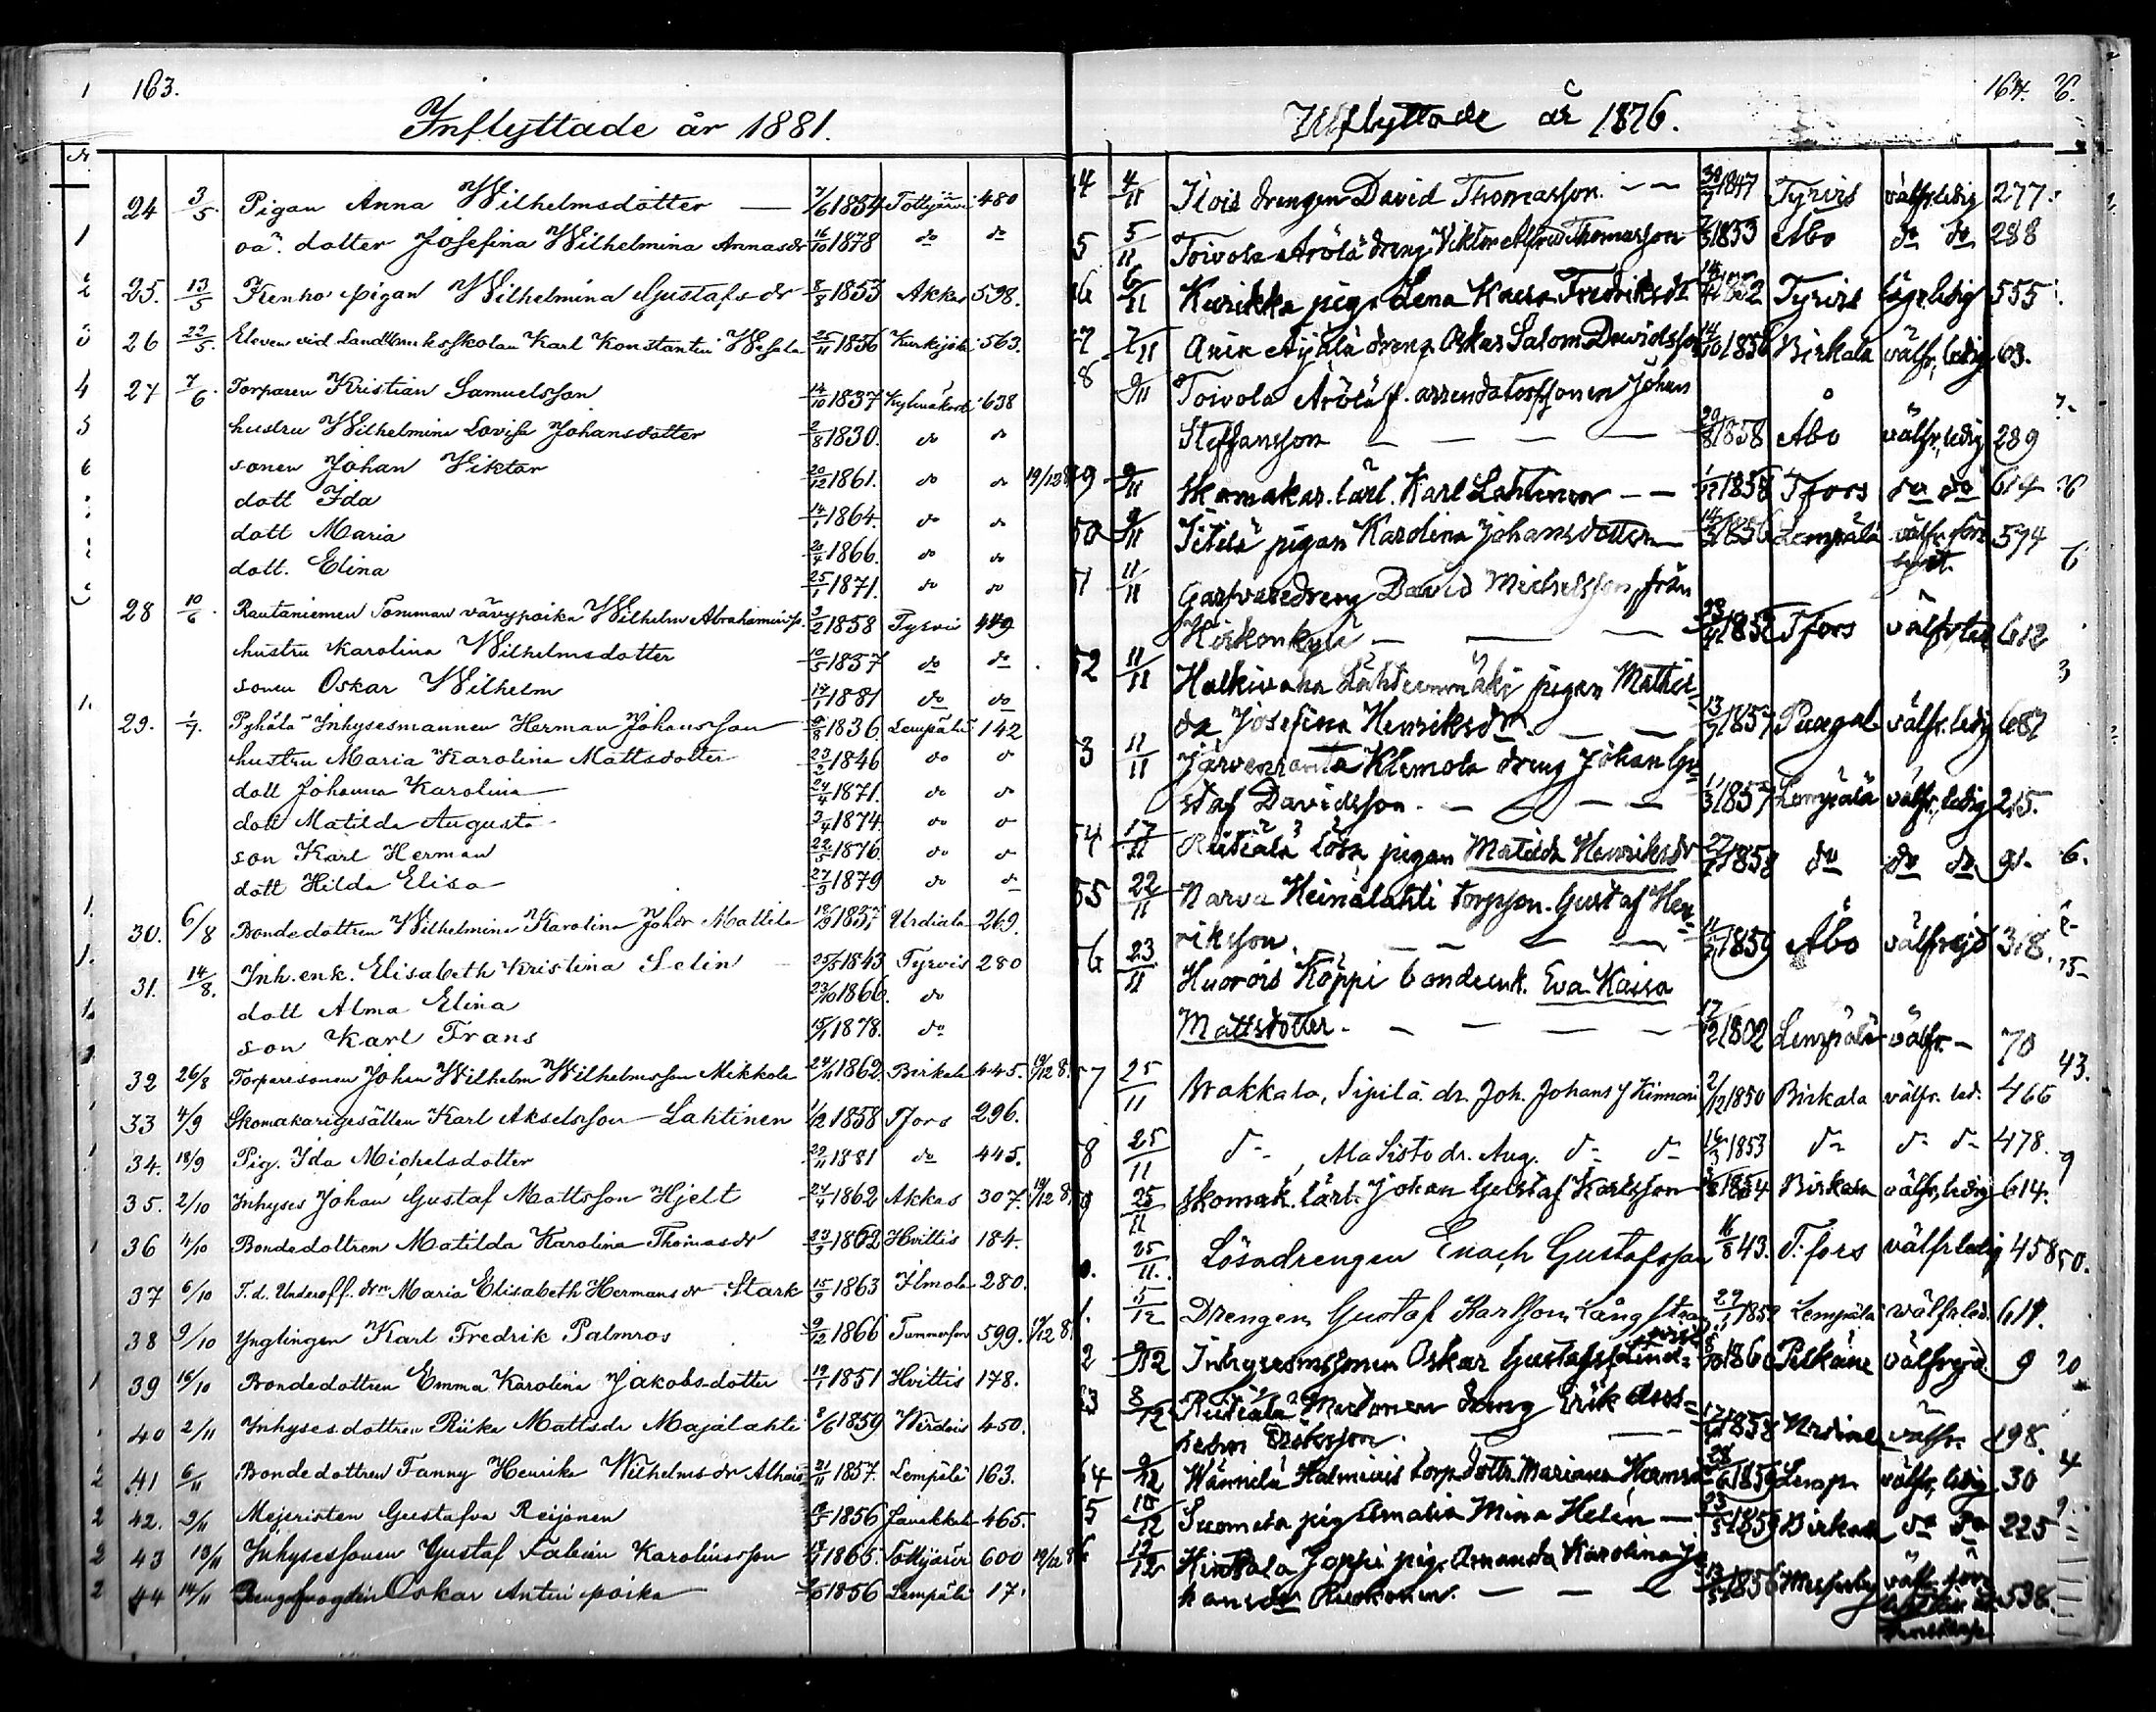 163.
Inflyttade år 1881.
24 3/5. Pigan Anna Wilhelmsdotter — 7/6 1854 Tottijärvi 480
oä. dotter Josefina Wilhelmina Annasdr 16/10 1878 do do
25. 13/5 Kenho pigan Wilhelmina Gustafsdr 8/8 1853 Akkas 598.
26 22/5. Eleven vid Landtbruksskolan Karl Konstantin Wesala 25/11 1856 Kurkijoki 563.
27 7/6. Torparen Kristian Samuelsson 14/10 1837 Kylmäkoski 638
hustru Wilhelmina Lovisa Johansdotter 2/8 1830. do do
sonen Johan Viktor 20/12 1861. do do 19/12 8
dott Ida 14/1 1864. do do
dott Maria 20/4 1866. do do
dott. Elina 25/1 1871. do do
28 10/6. Rautaniemen Tomman vävypoika Wilhelm Abrahaminp. 3/2 1858 Tyrvis 449
hustru Karolina Wilhelmsdotter 10/5 1857 do do
sonen Oskar Wilhelm 17/1 1881 do do
29. 1/7. Pyhälä Inhysesmannen Herman Johansson 9/8 1836. Lempälä 142
hustru Maria Karolina Mattsdotter 23/2 1846 do do
dott Johanna Karolina 24/4 1871. do do
dott Matilda Augusta 3/4 1874 do do
son Karl Herman 22/5 1876. do do
dott Hilda Elisa 27/3 1879 do do
30. 6/8 Bondedottren Wilhelmina Karolina Johdr Mattila 1857 Urdiala 269.
31. 14/8. Inh. enk. Elisabeth Kristina Selin 25/5 1843 Tyrvis 280
dott Alma Elina 23/10 1866. do
son Karl Frans 15/1 1878. do
32 26/8 Torparesonen Johan Wilhelm Wilhelmsson Mikkola 24/11 1862. Birkala 445. 19/12 8.
33 4/9 Skomakarigesällen Karl Akselsson Lahtinen 1/12 1858 Tfors 296.
34. 18/9 Pig. Ida Michelsdotter 29/11 1881 do 445.
35. 2/10 Inhyses Johan Gustaf Mattsson Hjelt 27/4 1862 Akkas 307. 19/12 8
36 4/10 Bondedottren Matilda Karolina Thomasdr 1862 Hvittis 184.
37 6/10 F.d. Underoff. drn Maria Elisabeth Hermansdr Stark 15/9 1863 Ilmola 280.
38 9/10 Ynglingen Karl Fredrik Palmros 9/12 1866 Tammerfors 599. 19/12 8
39 16/10 Bondedottren Emma Karolina Jakobsdotter 19/1 1851 Hvittis 178.
40 2/11 Inhysesdottren Riika Mattsdr Majalahti 8/6 1859 Wirdois 450.
41 6/11 Bondedottren Fanny Henrika Wilhelmsdr Alhais 21/11 1857. Lempälä 163.
42. 9/11 Mejeristen Gustafva Reijonen 1856 Janakkala 465.
43 13/11 Inhysessonen Gustaf Fabian Karolinsson 1865. Tottijärvi 600 19/12 8
44 14/11 Oskar Antin poika 1856 Lempälä 17.
164.
Utflyttade år 1876.
4 4/11 Ilois drengen David Thomasson. — — 1847 Tyrvis välfr. ledig 277.
5 5/11 Toivola Arölä dreng Viktor Alfred Thomasson 1853 Åbo do do 288
6 6/11 Kurikka pig. Lena Kaisa Fredriksdr 1852 Tyrvis läger ledig 555
7 7/11 Äijälä dreng Oskar Salom Davidsson 14/10 1856 Birkala välfr, ledig 63.
8 9/11 Toivola Arölä f. arrendatorssonen Johan
Steffansson — — — — 29/8 1858 Åbo välfr, ledig 289
9 9/11 Skomakar. lärl. Karl Lahtinen — — 1/12 1858 Tfors do do 614
50 9/11 pigan Karolina Johansdotter — 1856 Lempälä välfr. för 594
51 11/11 Garfvaredreng David Michelsson, från
Kirkonkylä — — — 1852 Tfors välfr, led 612
52 11/11 Halkivaha Lähteenmäki pigan Mathil-
da Josefina Henriksdr. — — 1857 Pungal välfr. ledig 687
3 11/11 Järvenranta Klemola dreng Johan Gu-
staf Davidsson. — — — 1/3 1857 Lempälä välfr, ledig 215.
54 17/11 Rutiala lösa pigan Matilda Henriksdr 1858 do do do 91.
55 22/11 Narva Heinälahti torpson. Gustaf Hen-
riksson. — — — 1859 Åbo välfrejd 318.
56 23/11 Huorois Koppi bondeenk. Eva Kaisa
Mattsdotter. — — — — 17/12 1802 Lempälä välfr. — 70
57 25/11 Wakkala, Sipilä. dr. Joh. Johans f Kinnari 2/12 1850 Birkala välfr. led. 466
8 25/11 do, Ala Sisto dr. Aug. do do 16/3 1853 do do do 478.
9 25/11 Skomak. lärl. Johan Gustaf Karlsson 1854 Birkala välfr, ledig 614.
0. 25/11. Lösadrengen Enoch Gustafsson 16/8 43. T:fors välfr ledig 458
1. 5/12 Drengen Gustaf Karlsson Långström 29/1 1852 Lempälä välfr. led. 611.
2 9/12 Inhysesmssonen Oskar Gustafsson Lind- 1860 Pälkäne välfrejd. 9
63 8/12 Rutiala dreng Erik
helm Eriksson. — 1858 Urdiala välfr. 198.
64 9/12 Wännilä Halmiois torp. dottr. Mariana Hermsdr 1859 Lemp. välfr, ledig 30
5 10/12 Suomela pig Amalia Mina Helén — 1859 Birkala do do 225
6 12/12 Hinsala Joppi pig. Amanda Karolina Jo-
hansdr Ruokonen. — — — 1856 Messuby välfr. för 538.